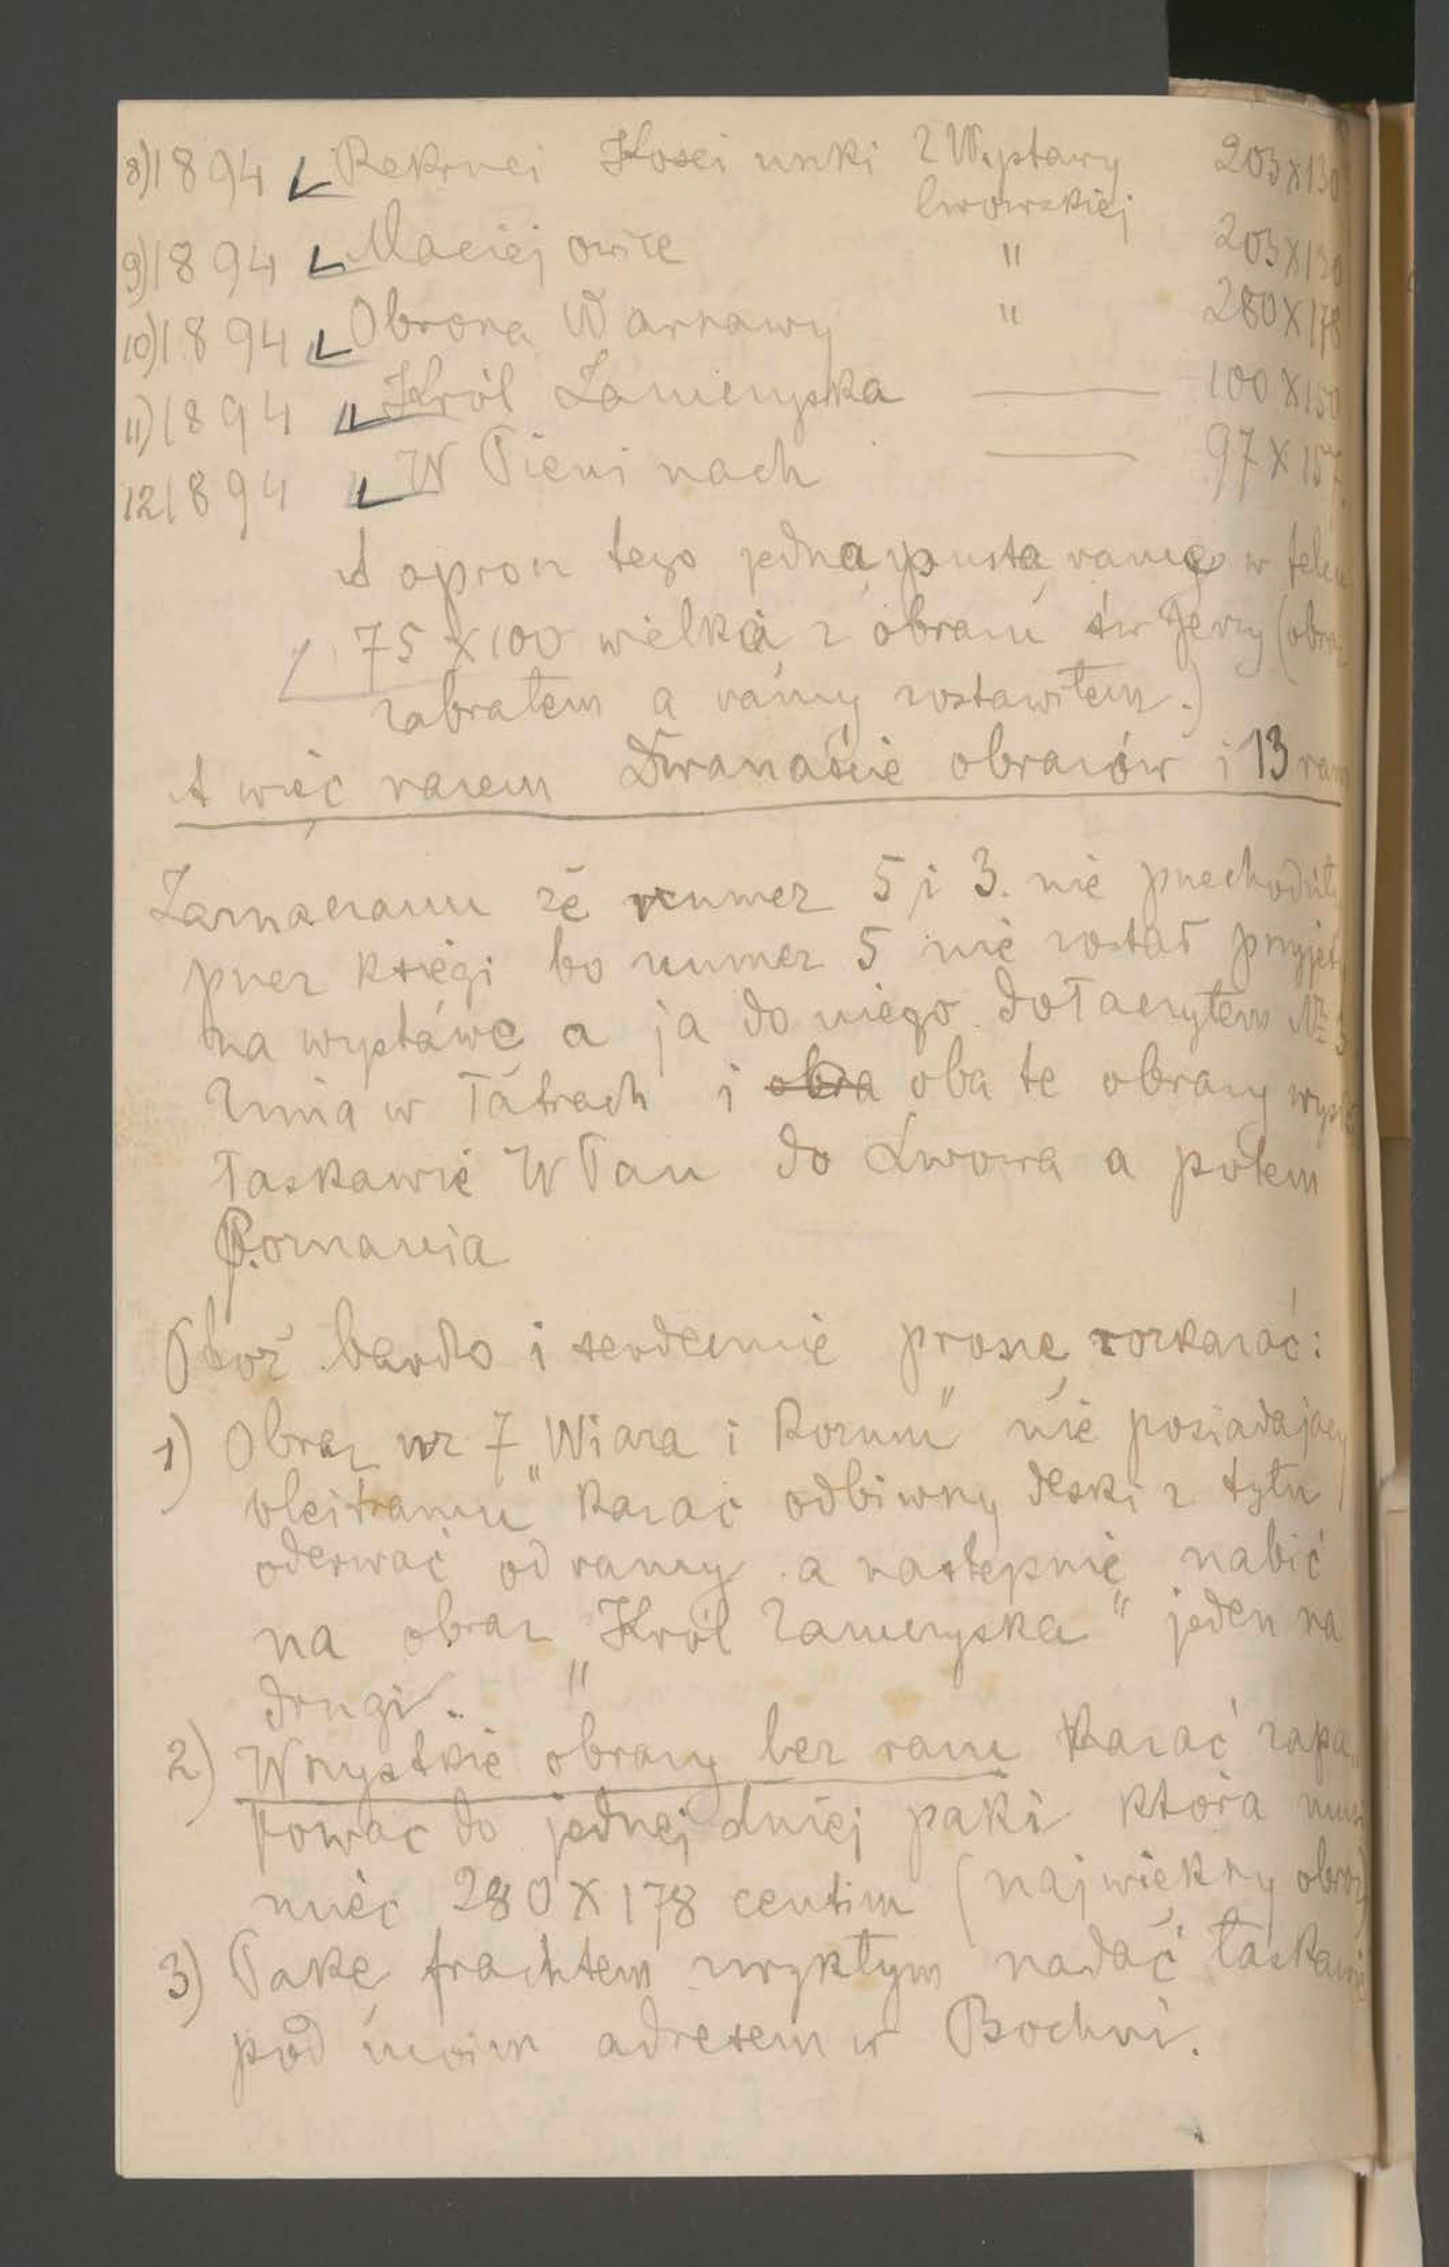 8) 1894 Rekruci Kosciuszki z Wystawy 203x130
lwowskiej
9) 1894 Maciejowice " 203x130
10) 1894 Obrona Warszawy " 280x178
11) 1894 Król Zamczyska — 100x150
12 1894 W Pieninach — 97x157
A oprocz tego jedną pustą ramę w
75x100 wielką z obrazu św Jerzy (obraz
zabrałem a ramy zostawiłem.)
A więc razem Dwanaście obrazów i 13 ram
Zaznaczam że numer 5 i 3. nie przechodziły
przez księgi bo numer 5 nie został przyjęty
na wystawę a ja do niego dołaczyłem № 3
Zima w Tatrach i obra oba te obrazy
łaskawie WPan do Lwowa a potem
Poznania
Otoż bardzo i serdecznie proszę rozkazać:
1) Obraz nr 7 „Wiara i Rozum" nie posiadający
bleitramu kazać odbiwszy deski z tyłu
oderwać od ramy a następnie nabić
na obraz „Król Zamczyska" jeden na
drugi.
2) Wszystkie obrazy bez ram kazać zapa-
kować do jednej dużej paki która musi
mieć 280x178 centim (największy obraz)
3) Pakę frachtem zwykłym nadać łaskawie
pod moim adresem w Bochni.